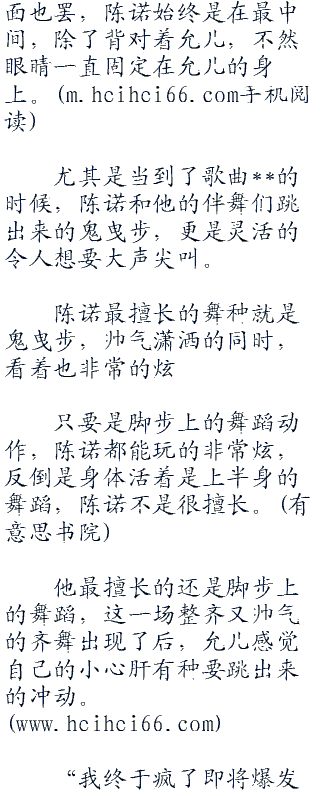 面也罢，陈诺始终是在最中
间，除了背对着允儿，不然
眼睛一直固定在允儿的身
上。(m.hcihci66.com手机阅
读)
尤其是当到了歌曲**的
时候，陈诺和他的伴舞们跳
出来的鬼曳步，更是灵活的
令人想要大声尖叫。
陈诺最擅长的舞种就是
鬼曳步，帅气潇洒的同时，
看着也非常的炫
只要是脚步上的舞蹈动
作，陈诺都能玩的非常炫，
反倒是身体活着是上半身的
舞蹈，陈诺不是很擅长。(有
意思书院)
他最擅长的还是脚步上
的舞蹈，这一场整齐又帅气
的齐舞出现了后，允儿感觉
自己的小心肝有种要跳出来
的冲动。
(www.hcihci66.com)
“我终于疯了即将爆发